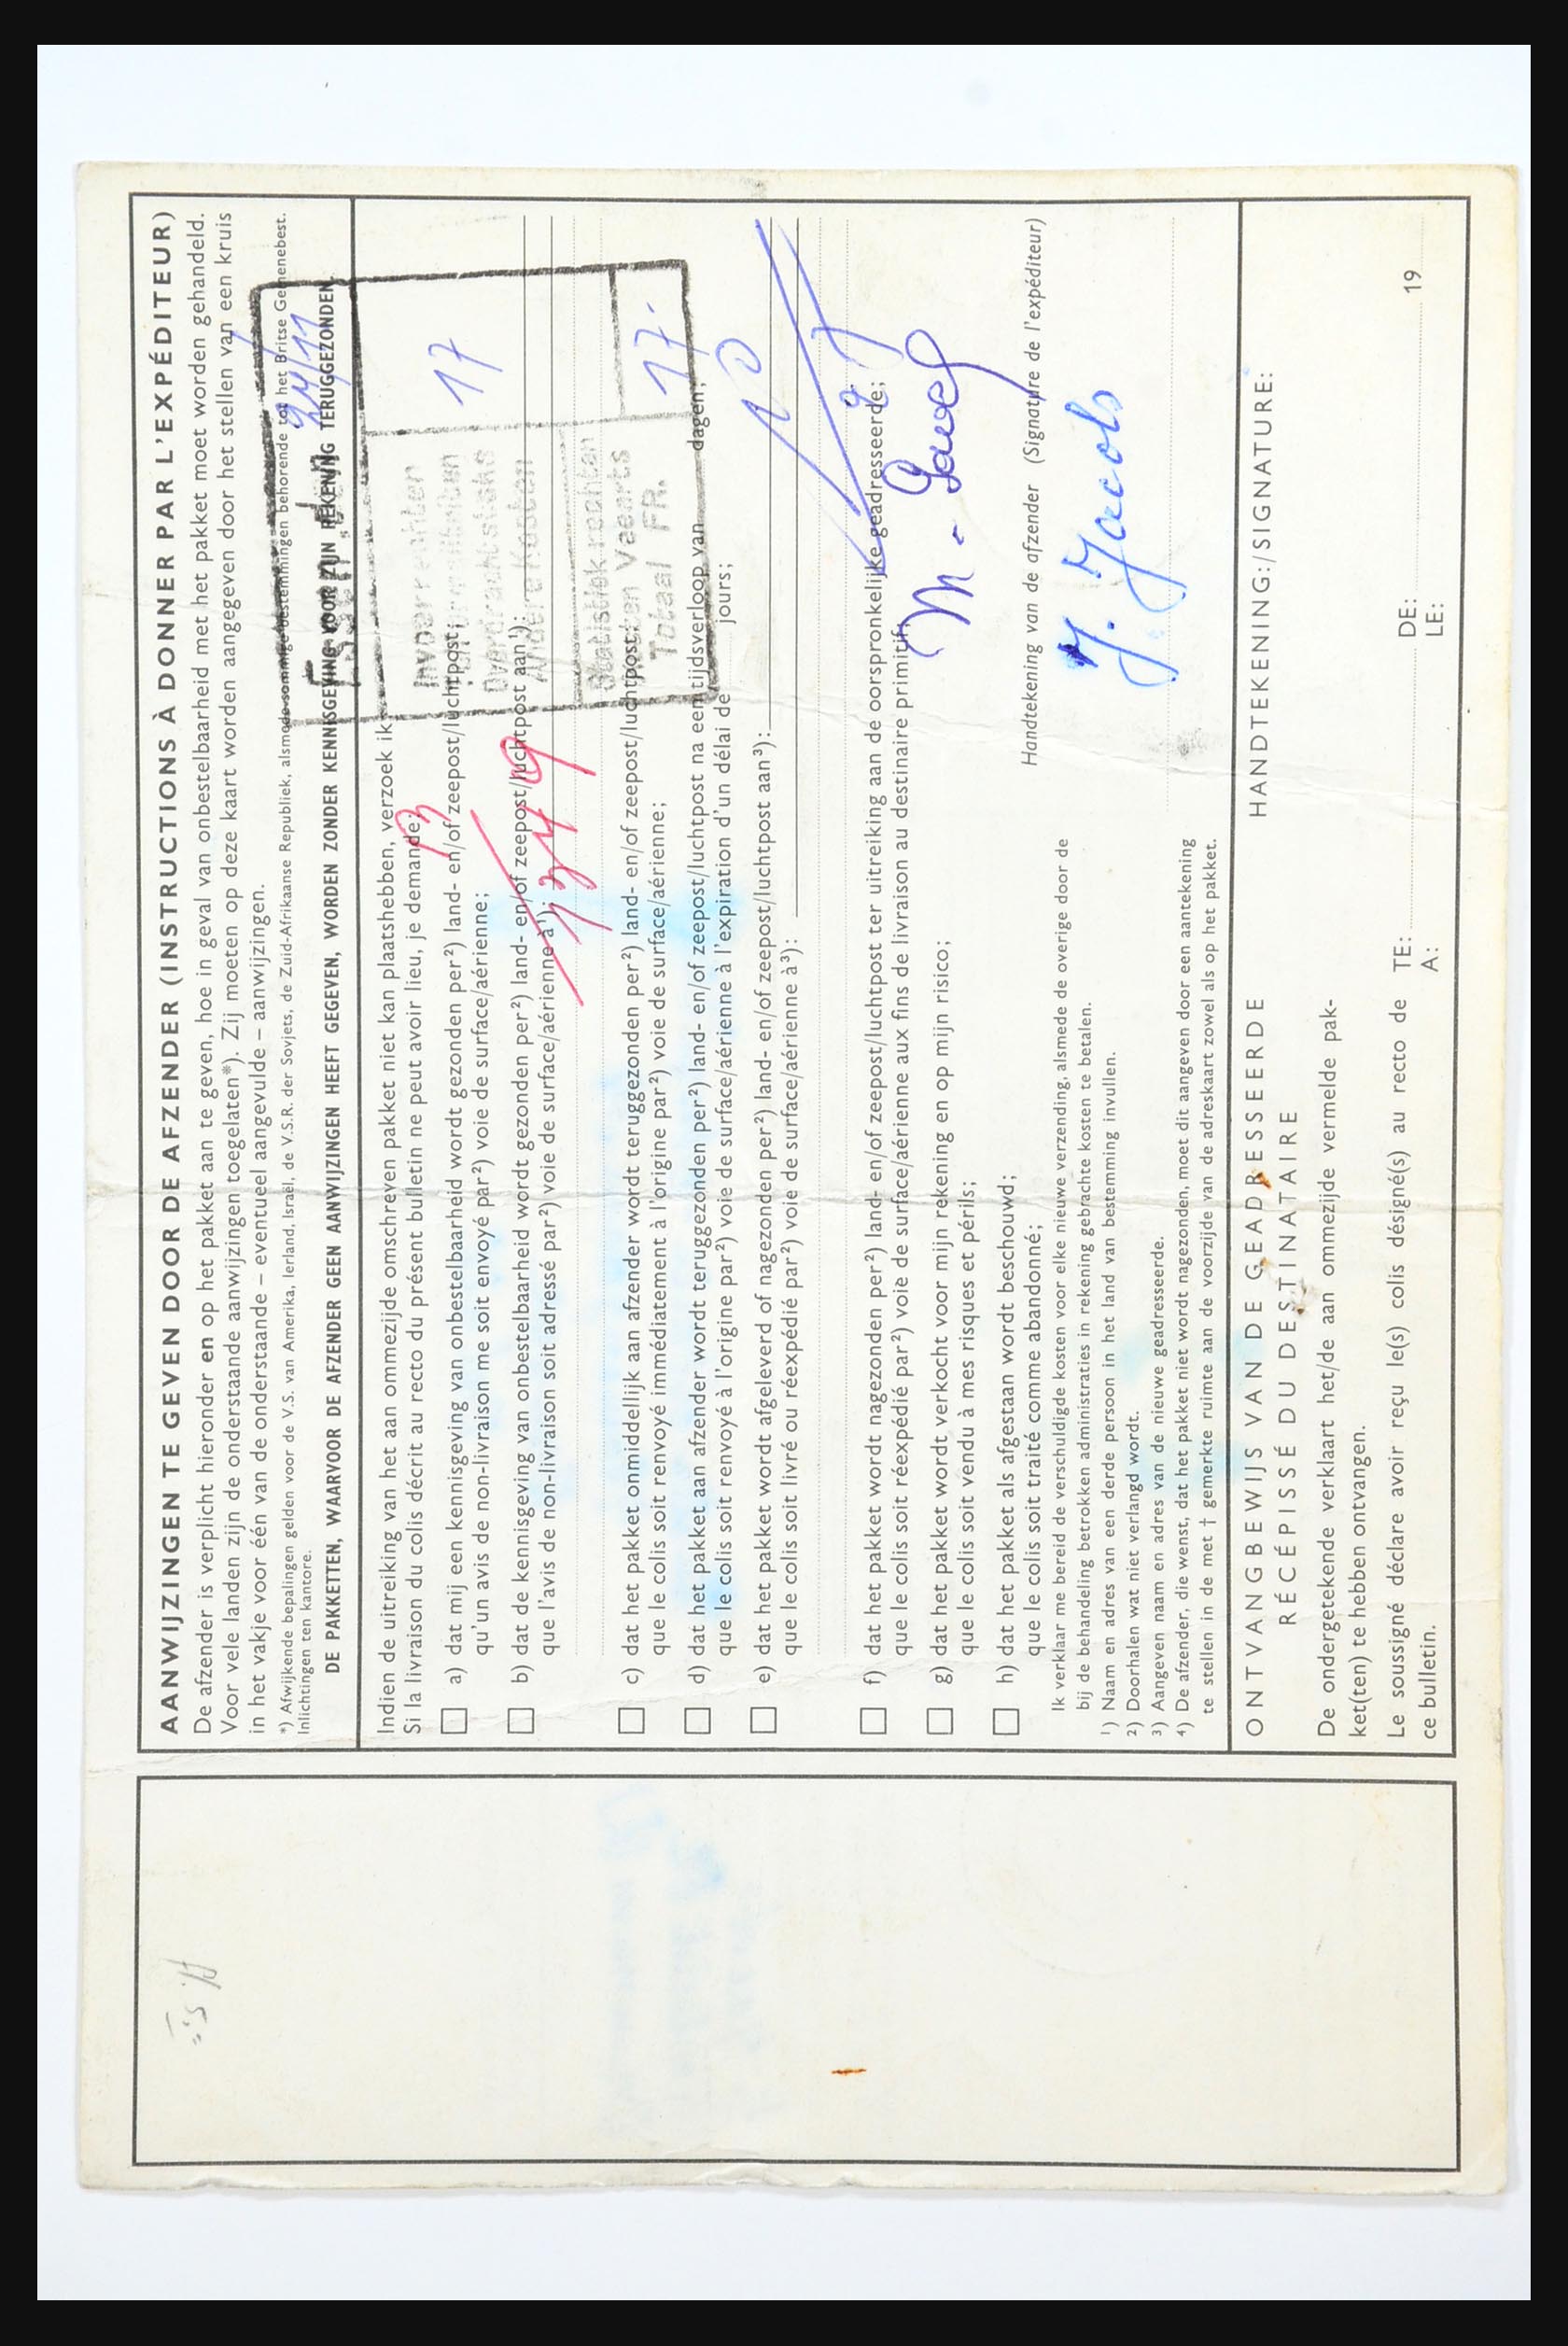 AANWIJZINGEN TE GEVEN DOOR DE AFZENDER (INSTRUCTIONS À DONNER PAR L'EXPÉDITEUR)
De afzender is verplicht hieronder en op het pakket aan te geven, hoe in geval van onbestelbaarheid met het pakket moet worden gehandeld.
Voor vele landen zijn de onderstaande aanwijzingen toegelaten*). Zij moeten op deze kaart worden aangegeven door het stellen van een kruis
in het vakje voor één van de onderstaande – eventueel aangevulde – aanwijzingen.
*) Afwijkende bepalingen gelden voor de V.S. van Amerika, Ierland, Israël, de V.S.R. der Sovjets, de Zuid-Afrikaanse Republiek, alsmede sommige bestemmingen behorende tot het Britse Gemenebest.
Inlichtingen ten kantore.
24/11
DE PAKKETTEN, WAARVOOR DE AFZENDER GEEN AANWIJZINGEN HEEFT GEGEVEN, WORDEN ZONDER KENNISGEVING VOOR ZIJN REKENING TERUGGEZONDEN.
Indien de uitreiking van het aan ommezijde omschreven pakket niet kan plaatshebben, verzoek ik:
Si la livraison du colis décrit au recto du présent bulletin ne peut avoir lieu, je demande:
a) dat mij een kennisgeving van onbestelbaarheid wordt gezonden per²) land- en/of zeepost/luchtpost;
qu'un avis de non-livraison me soit envoyé par²) voie de surface/aérienne;
b) dat de kennisgeving van onbestelbaarheid wordt gezonden per²) land- en/of zeepost/luchtpost aan¹):
que l'avis de non-livraison soit adressé par²) voie de surface/aérienne à¹):
Invoerrechten
Overdrachtstaks
Andere Kosten
Statistiek rechten
Totaal FR.
17
17.
10
c) het pakket onmiddellijk aan afzender wordt teruggezonden per²) land- en/of zeepost/luchtpost;
que le colis soit renvoyé immédiatement à l'origine par²) voie de surface/aérienne;
d) dat het pakket aan afzender wordt teruggezonden per²) land- en/of zeepost/luchtpost na een tijdsverloop van dagen;
que le colis soit renvoyé à l'origine par²) voie de surface/aérienne à l'expiration d'un délai de jours;
e) dat het pakket wordt afgeleverd of nagezonden per²) land- en/of zeepost/luchtpost aan³):
que le colis soit livré ou réexpédié par²) voie de surface/aérienne à³):
f) dat het pakket wordt nagezonden per²) land- en/of zeepost/luchtpost ter uitreiking aan de oorspronkelijke geadresseerde;
que le colis soit réexpédié par²) voie de surface/aérienne aux fins de livraison au destinaire primitif;
g) dat het pakket wordt verkocht voor mijn rekening en op mijn risico;
que le colis soit vendu à mes risques et périls;
h) dat het pakket als afgestaan wordt beschouwd;
que le colis soit traité comme abandonné;
Handtekening van de afzender (Signature de l'expéditeur)
J. Jacobs
Ik verklaar me bereid de verschuldigde kosten voor elke nieuwe verzending, alsmede de overige door de
bij de behandeling betrokken administraties in rekening gebrachte kosten te betalen.
¹) Naam en adres van een derde persoon in het land van bestemming invullen.
²) Doorhalen wat niet verlangd wordt.
³) Aangeven naam en adres van de nieuwe geadresseerde.
⁴) De afzender, die wenst, dat het pakket niet wordt nagezonden, moet dit aangeven door een aantekening
te stellen in de met † gemerkte ruimte aan de voorzijde van de adreskaart zowel als op het pakket.
ONTVANGBEWIJS VAN DE GEADRESSEERDE
RÉCÉPISSÉ DU DESTINATAIRE
HANDTEKENING:/SIGNATURE:
De ondergetekende verklaart het/de aan ommezijde vermelde pak-
ket(ten) te hebben ontvangen.
Le soussigné déclare avoir reçu le(s) colis désigné(s) au recto de
ce bulletin.
TE: DE: 19
A: LE: